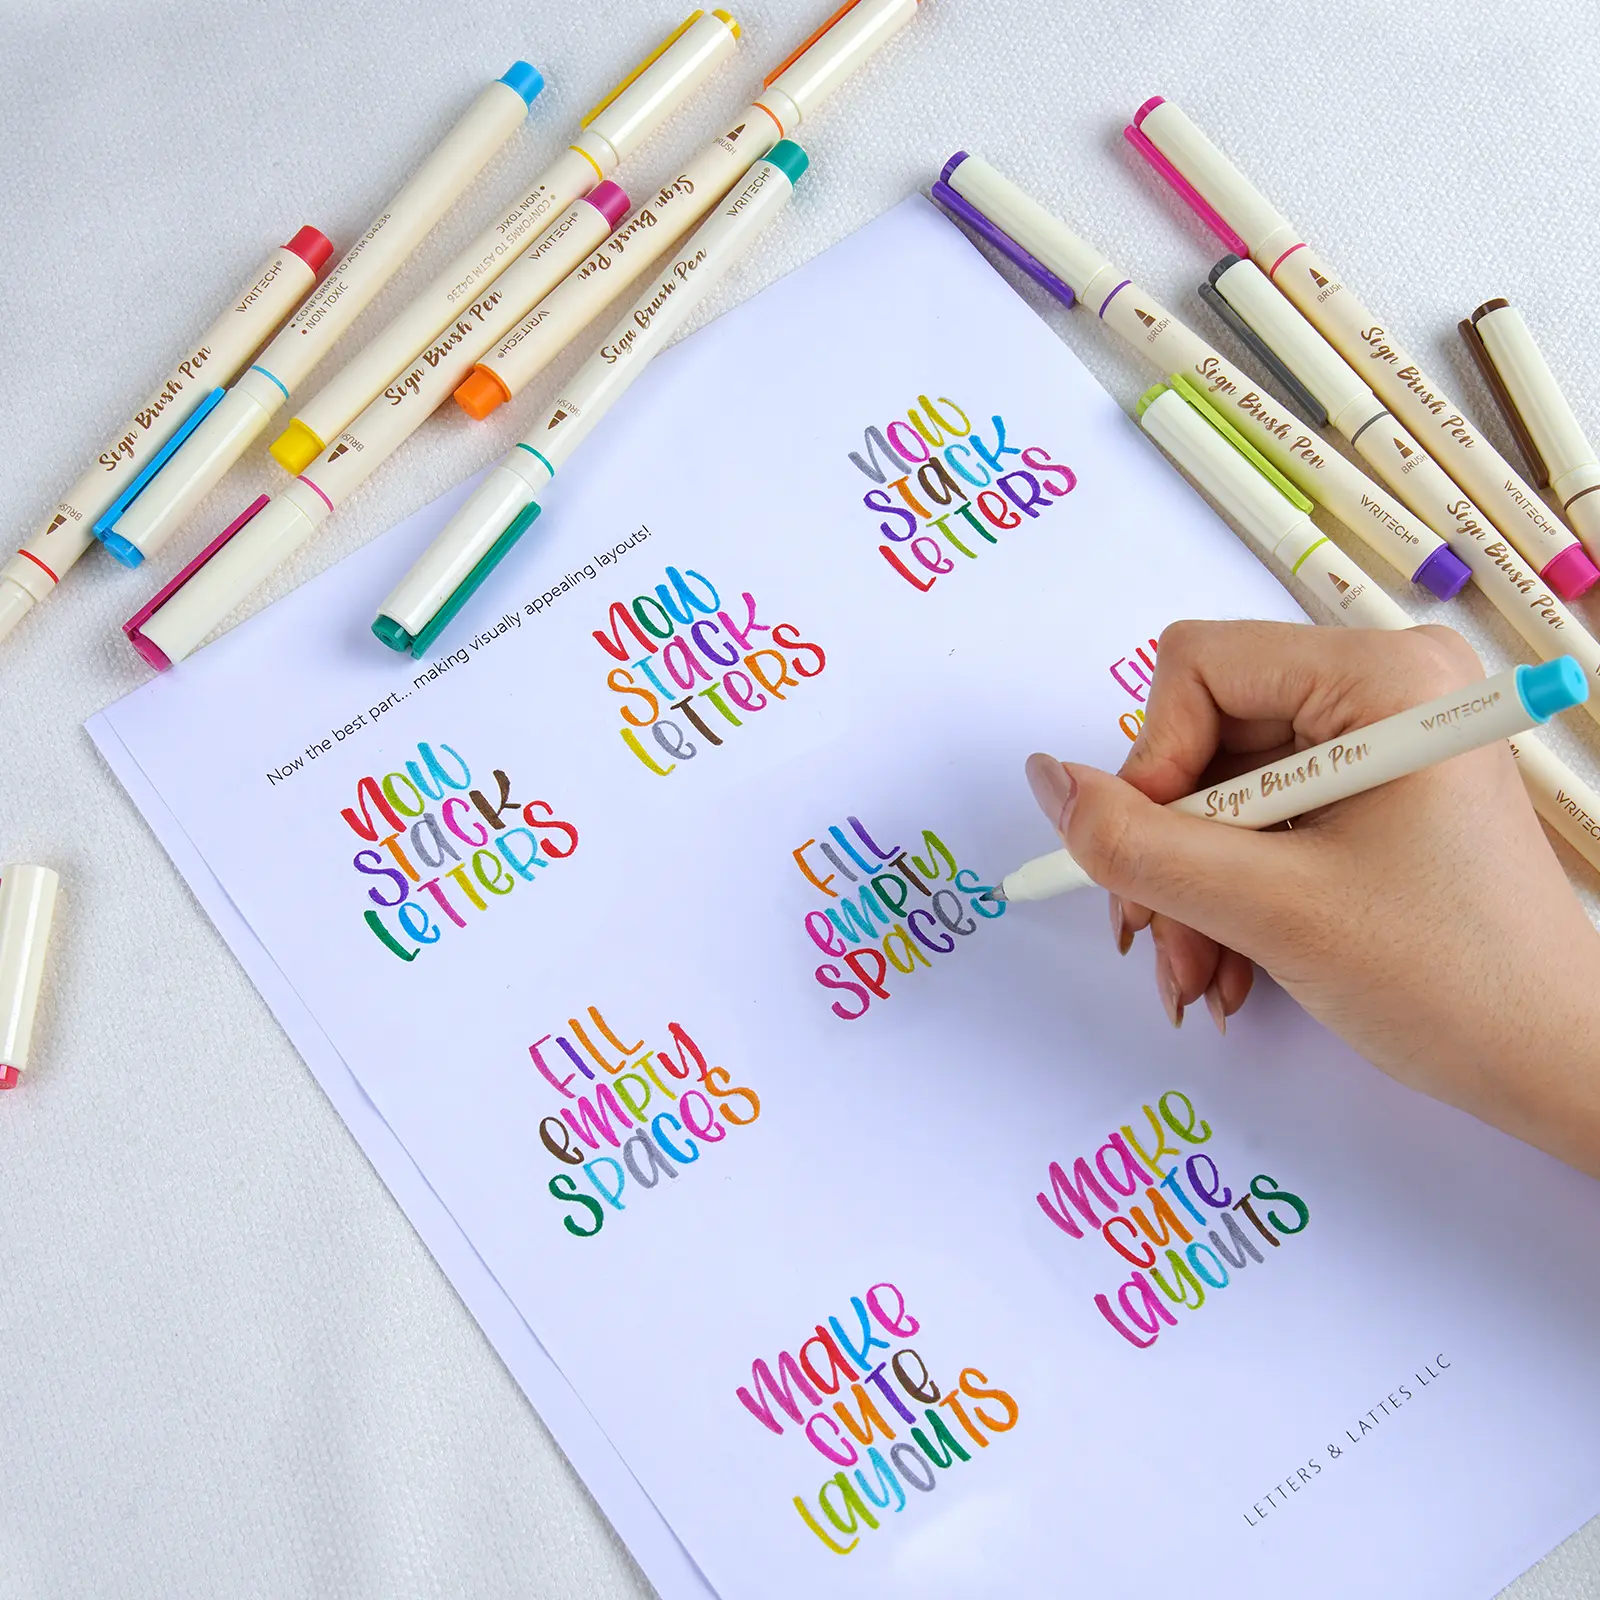 Now the best part... making visually appealing layouts!
now
stack
letters
now
stack
letters
now
stack
letters
Fill
empty
spaces
Fill
empty
spaces
Fill
make
cute
layouts
make
cute
layouts
LETTERS & LATTES LLC
WRITECH®
Sign Brush Pen
BRUSH
• CONFORMS TO ASTM D4236
• NON TOXIC
• CONFORMS TO ASTM D4236
NON TOXIC
WRITECH®
Sign Brush Pen
BRUSH
BRUSH
Sign Brush Pen
WRITECH®
WRITECH®
Sign Brush Pen
BRUSH
BRUSH
Sign Brush Pen
WRITECH®
BRUSH
Sign Brush Pen
WRITECH®
BRUSH
Sign Brush Pen
BRUSH
Sign Brush Pen
WRITECH®